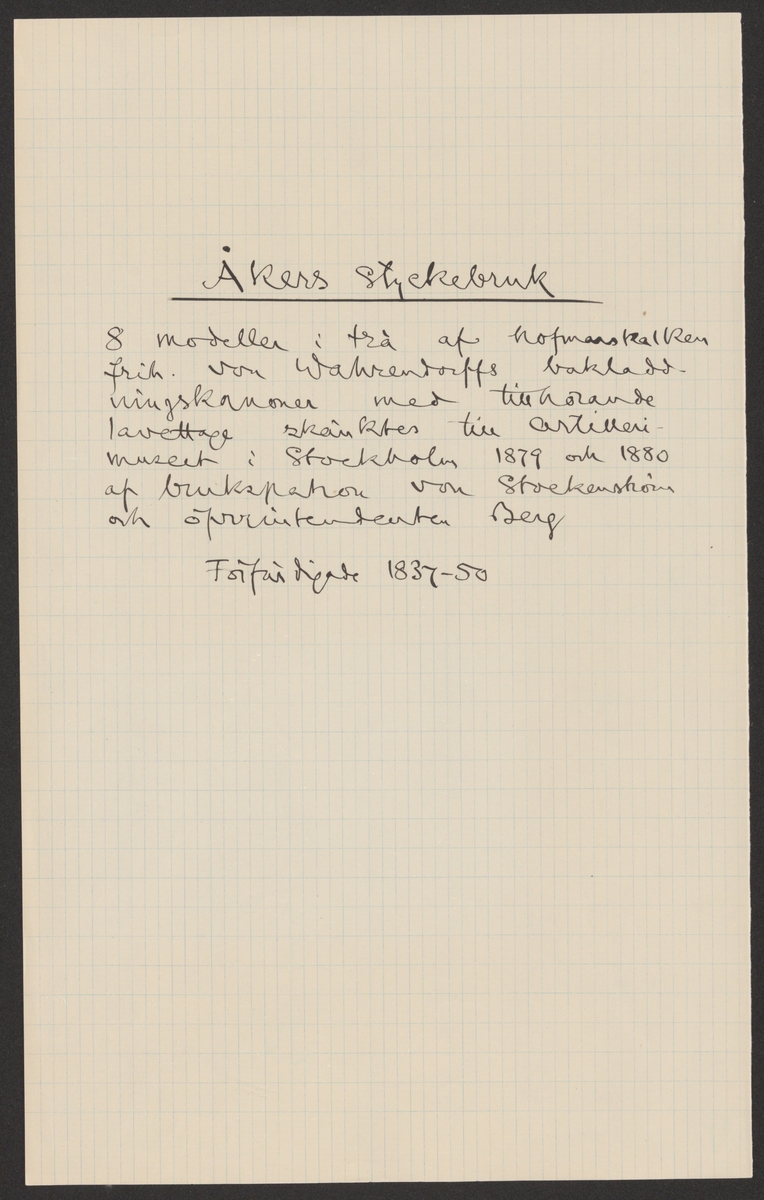 Åkers Styckebruk
8 modeller i trä af hofmarskalken
frih. von Wahrendorffs bakladd-
ningskanoner med tillhörande
lavettage skänktes till Artilleri-
museet i Stockholm 1879 och 1880
af brukspatron von Stockenström
och öfverintendenten Berg
Förfärdigade 1837-50